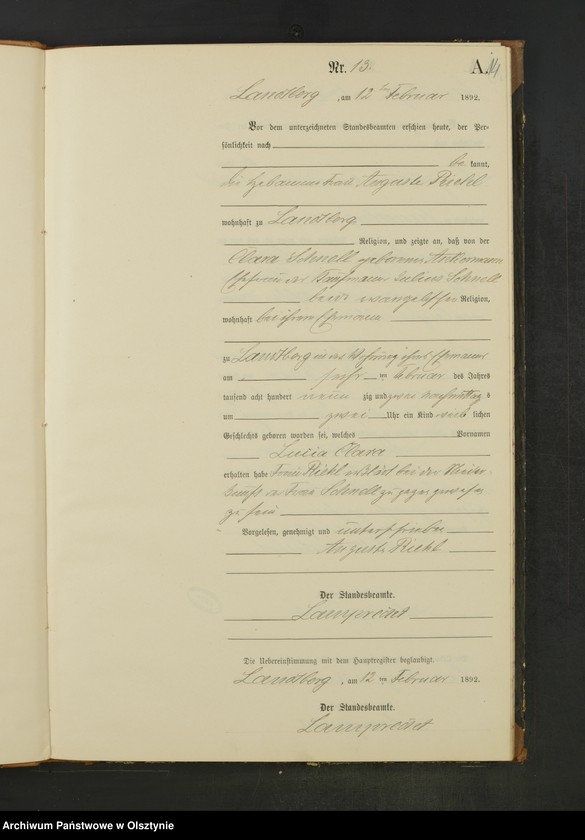 Nr. 13.
A. 14
Landsberg, am 12 ten Februar 1892.
Vor dem unterzeichneten Standesbeamten erschien heute, der Per-
sönlichkeit nach
be kannt,
die Hebamme Frau Auguste Riehl
wohnhaft zu Landsberg
Religion, und zeigte an, daß von der
Clara Schnell geborenen
Ehefrau des Kaufmanns Julius Schnell
beide evangelischer Religion,
wohnhaft bei ihrem Ehemann
zu Landsberg in der Wohnung ihres Ehemannes
am sechs ten Februar des Jahres
tausend acht hundert neun zig und zwei Nachmittag s
um zwei Uhr ein Kind weib lichen
Geschlechts geboren worden sei, welches Vornamen
Lucia Clara
erhalten habe Frau Riehl erklärt bei der Nieder-
kunft der Frau Schnell zugegen gewesen
zu sein
Vorgelesen, genehmigt und unterschrieben
Auguste Riehl
Der Standesbeamte.
Lamprecht
Die Uebereinstimmung mit dem Hauptregister beglaubigt
Landsberg, am 12 ten Februar 1892.
Der Standesbeamte.
Lamprecht
Archiwum Państwowe w Olsztynie